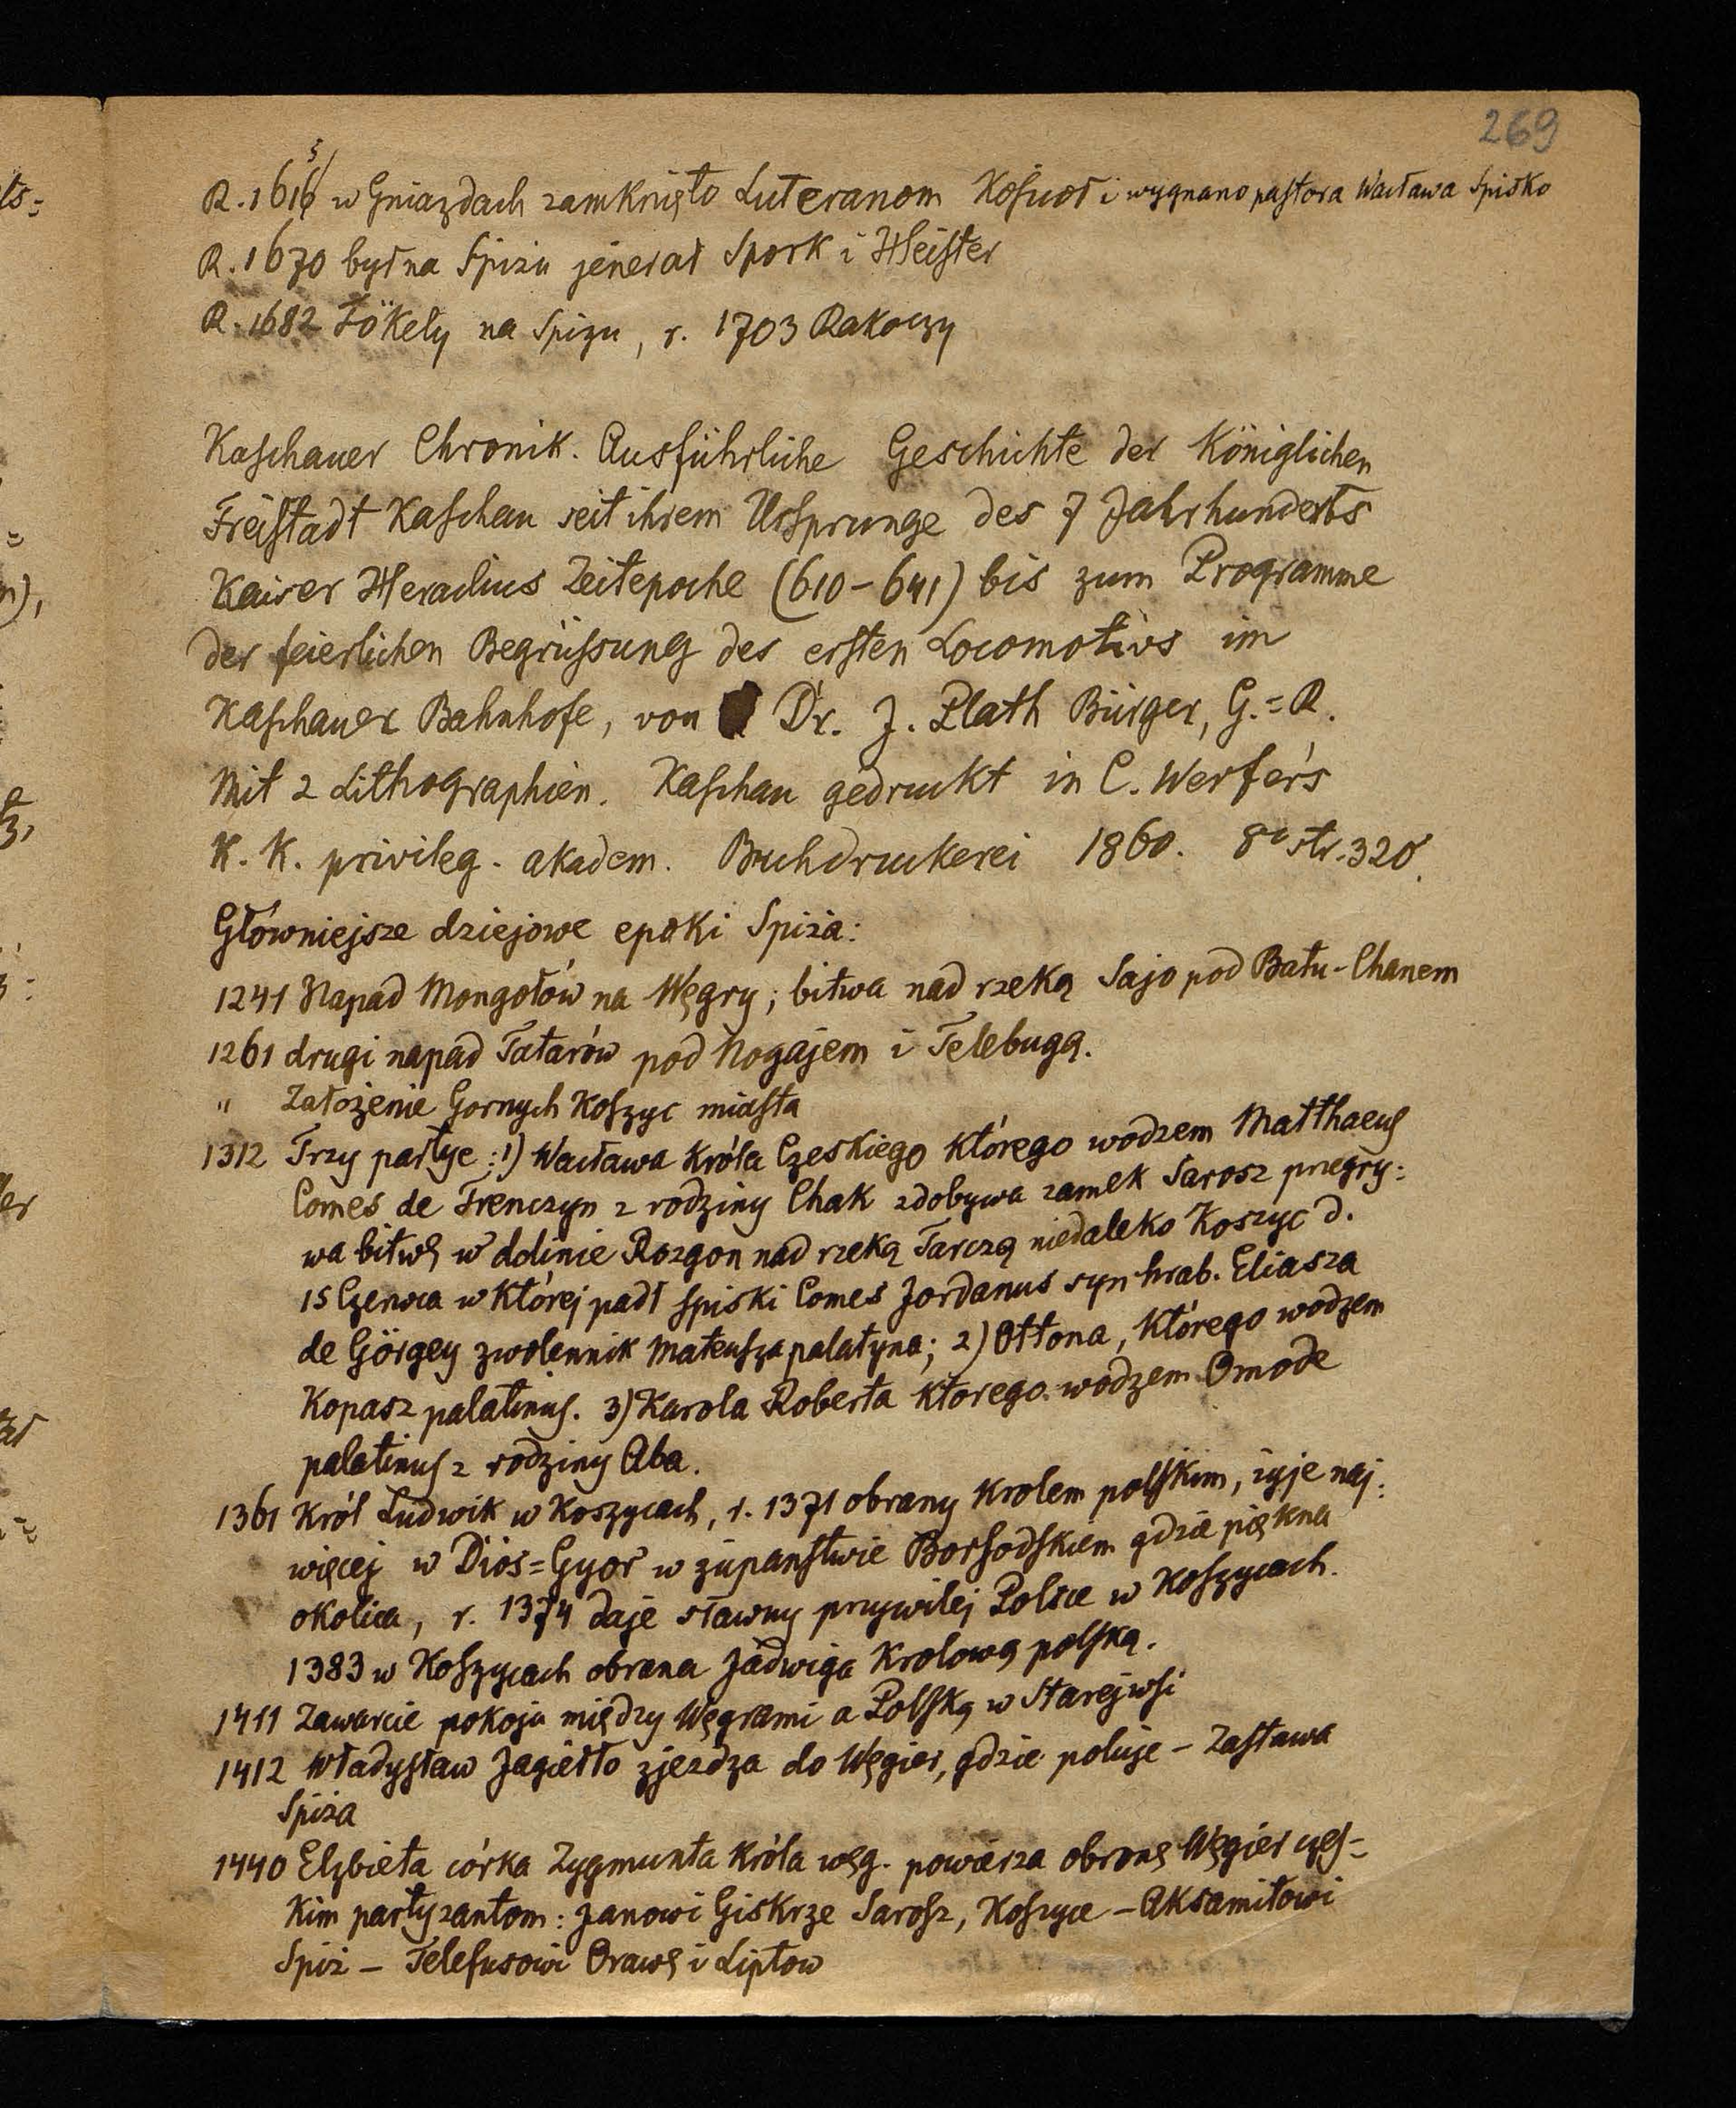 269
R. 1615 w Gniazdach zamknięto Luteranom Kośuoł i wygnano pastora Wacława Spisko
R. 1670 był na Spizu jenerał Spork i Heister
R. 1682 Tökely na Spizu, r. 1703 Rakoczy
Kaschauer Chronik. Ausführliche Geschichte der Königlichen
Freistadt Kaschau seit ihrem Ursprunge des 7 Jahrhunderts
Kaiser Heraclius Zeitepoche (610-641) bis zum Programme
der feierlichen Begrüssung des ersten Locomotivs im
Kaschauer Bahnhofe, von Dr. J. Plath Bürger, G.=R.
Mit 2 Lithographien. Kaschau gedruckt in C. Werfer's
K. K. privileg. akadem. Buchdruckerei 1860. 8° str. 320.
Główniejsze dziejowe epoki Spiża:
1241 Napad Mongołów na Węgry; bitwa nad rzeką Sajo pod Batu-Chanem
1261 drugi napad Tatarów pod Nogajem i Telebugą.
" Założenie Gornych Koszyc miasta
1312 Trzy partye: 1) Wacława Króla Czeskiego którego wodzem Matthaeus
Comes de Trenczyn z rodziny Chak zdobywa zamek Sarosz przegry=
wa bitwę w dolinie Rozgon nad rzeką Tarczą niedaleko Koszyc d.
15 Czerwca w której padł spiski Comes Jordanus syn hrab. Eliasza
de Görgey zwolennik Mateusza palatyna; 2) Ottona, którego wodzem
Kopasz palatinus. 3) Karola Roberta ktorego wodzem Omode
palatinus z rodziny Aba.
1361 Król Ludwik w Koszycach, r. 1371 obrany Krolem polskim, żyje naj=
więcej w Dios=Gyor w żupanstwie Borsodskiem gdzie piękna
okolica, r. 1374 daje sławny przywilej Polsce w Koszycach.
1383 w Koszycach obrana Jadwiga Krolową polską.
1411 Zawarcie pokoju między Węgrami a Polską w Starejwsi
1412 Władysław Jagiełło zjezdza do Węgier, gdzie poluje - Zastawa
Spiża
1440 Elżbieta córka Zygmunta Króla węg. powierza obronę Węgier czes=
Kim partyzantom: Janowi Giskrze Sarosz, Koszyce - Aksamitowi
Spiż - Telefusowi Orawę i Liptow